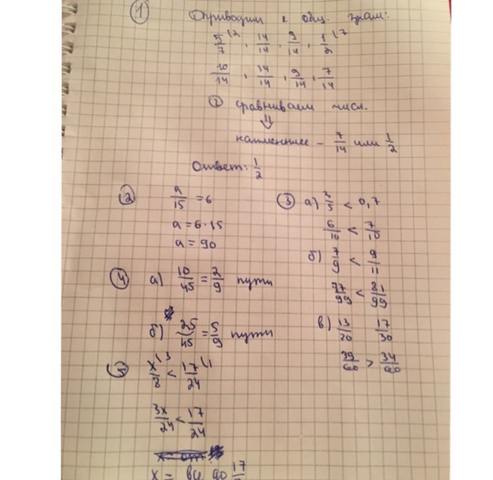 ① Приводим к общ. знам:
5/7 ¹², 14/14, 9/14, 1/2 ¹⁷
10/14, 14/14, 9/14, 7/14
② сравниваем числ.
⇓
наименьшее - 7/14 или 1/2
Ответ: 1/2
② a/15 = 6
a = 6·15
a = 90
③ а) 3/5 < 0,7
6/10 < 7/10
б) 7/9 < 9/11
77/99 < 81/99
в) 13/20 17/30
39/60 > 34/60
④ а) 10/45 = 2/9 пути
б) 25/45 = 5/9 пути
⑤ x/8 ¹³ < 17/24 ¹¹
3x/24 < 17/24
x = все до 17